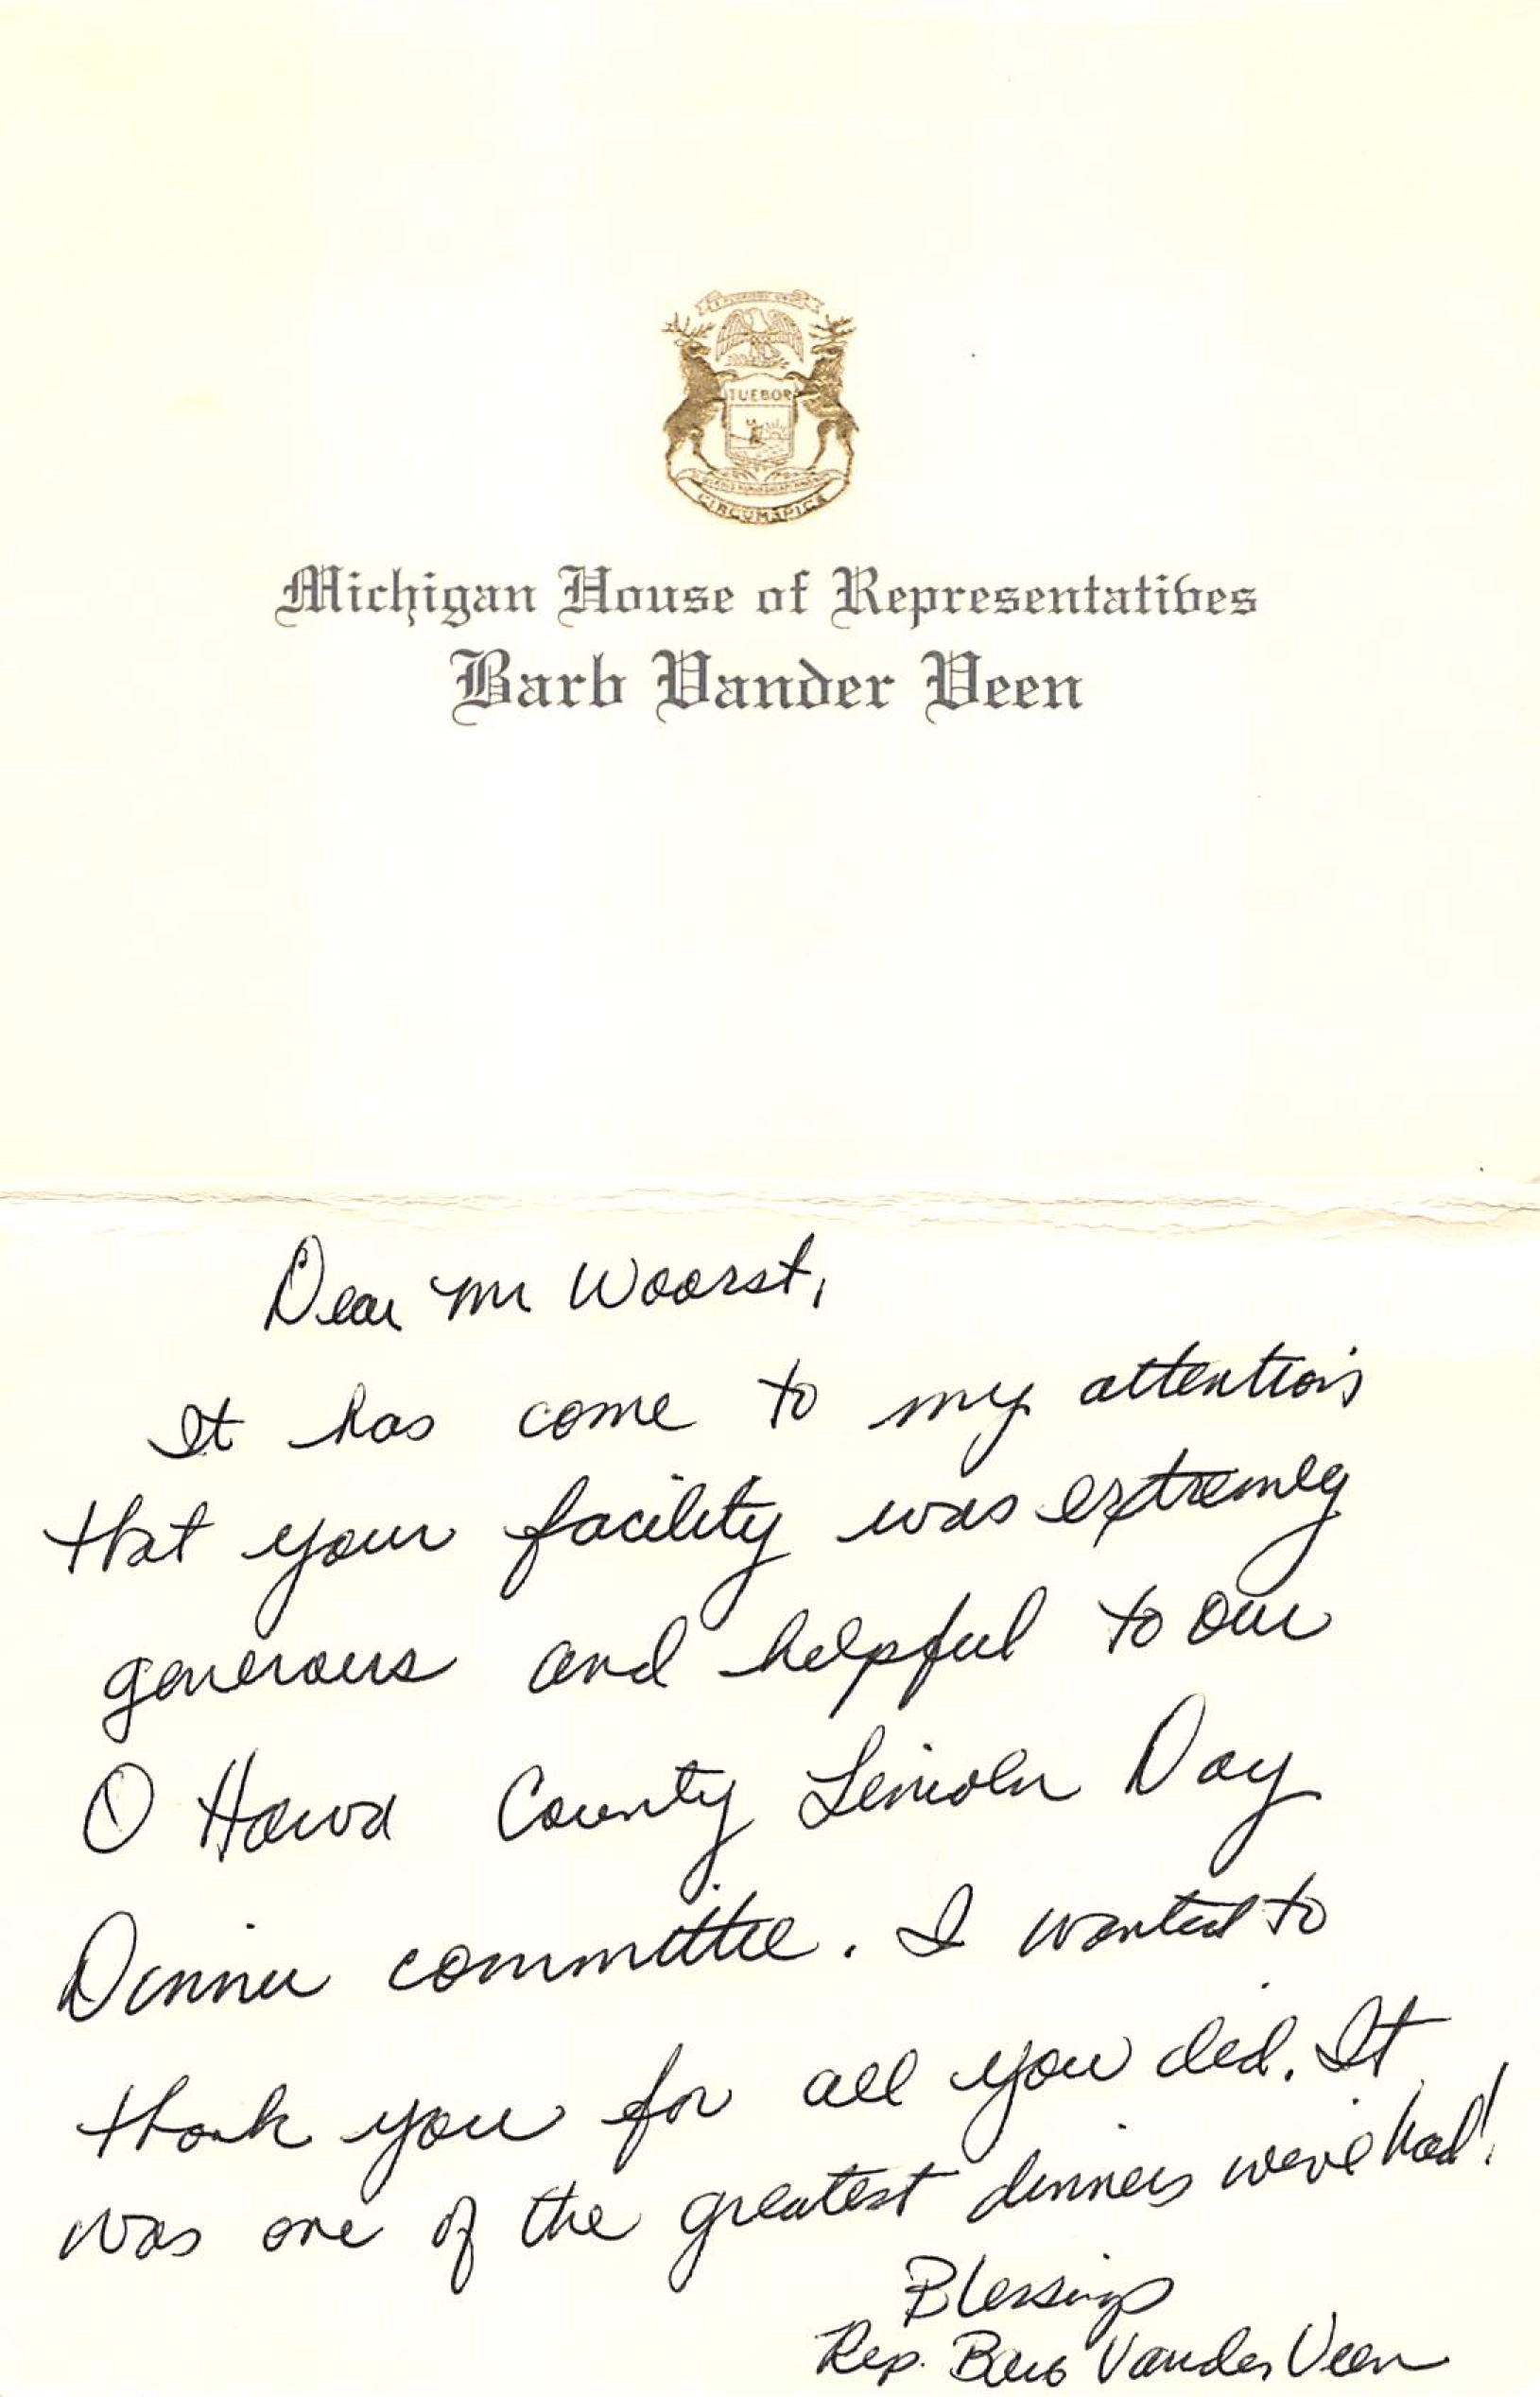 TUEBOR
CIRCUMSPICE
Michigan House of Representatives
Barb Vander Veen
Dear Mr Woorst,
It has come to my attention
that your facility was extremely
generous and helpful to our
Ottawa County Lincoln Day
Dinner committee. I wanted to
thank you for all you did. It
was one of the greatest dinners we've had!
Blessings
Rep. Barb Vander Veen